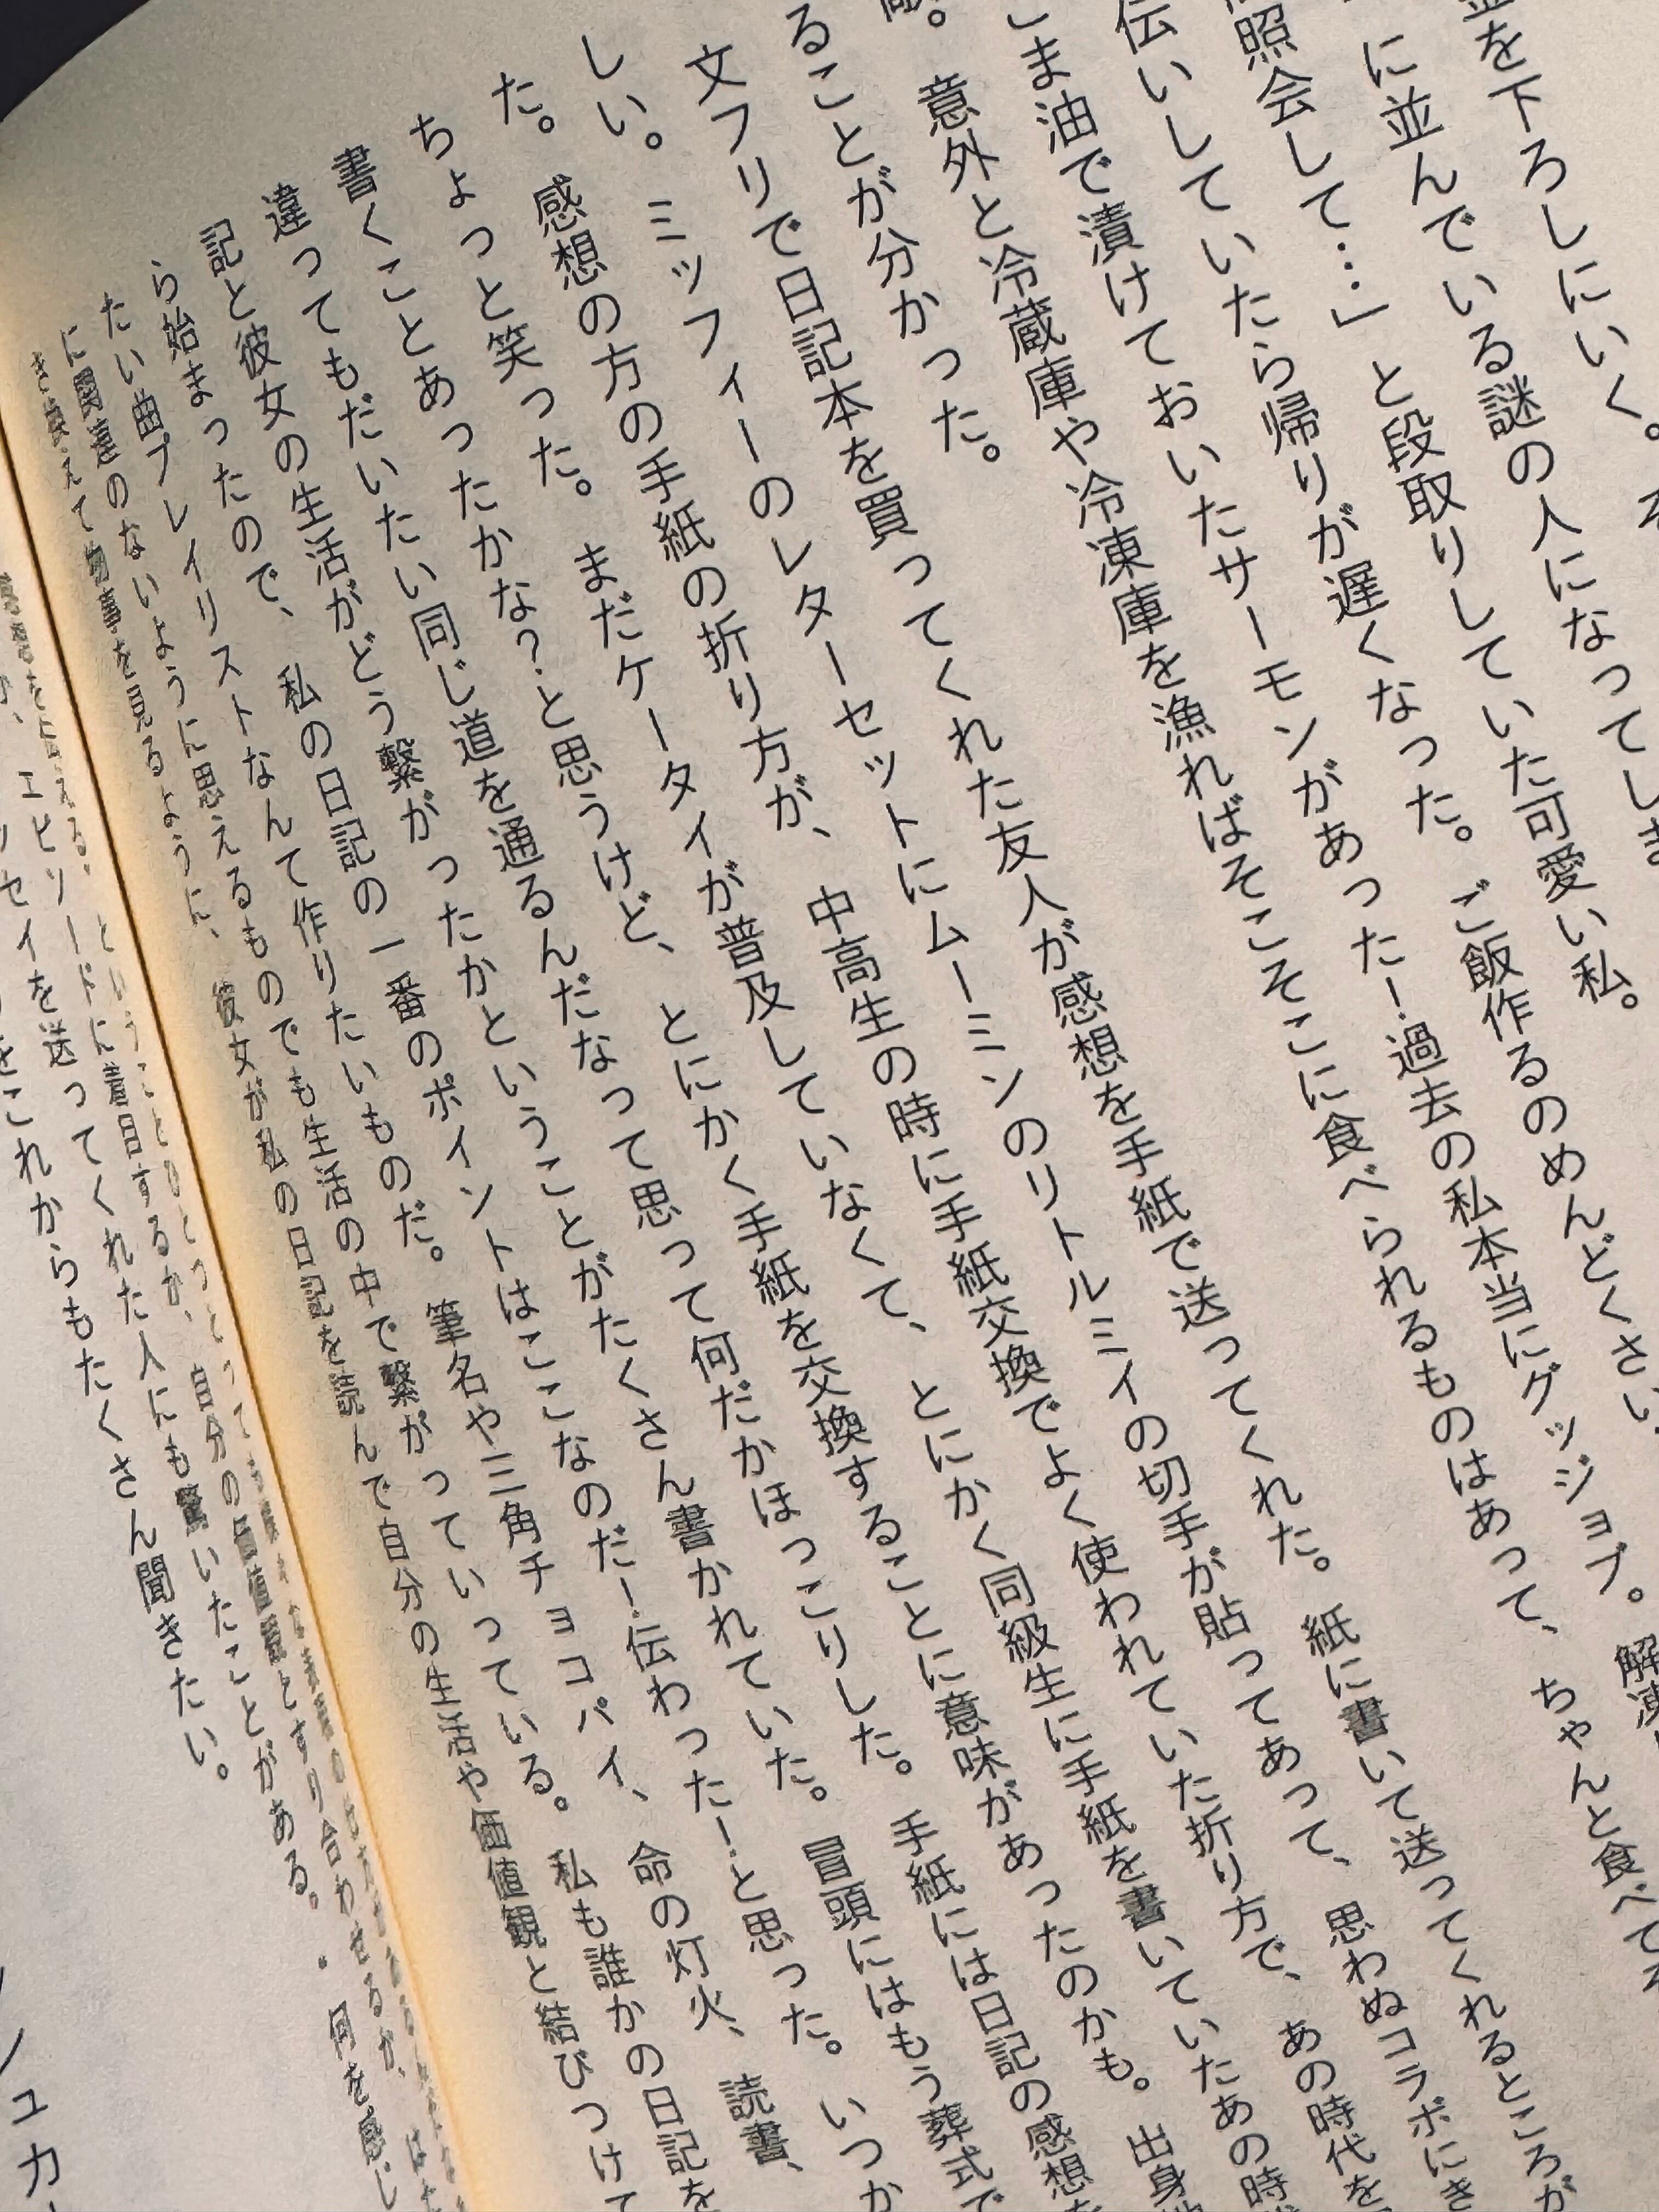 並を下ろしにいく。そ
に並んでいる謎の人になってしま
照会して…」と段取りしていた可愛い私。
伝いしていたら帰りが遅くなった。ご飯作るのめんどくさい
ごま油で漬けておいたサーモンがあった！過去の私本当にグッジョブ。解凍
敵。意外と冷蔵庫や冷凍庫を漁ればそこそこに食べられるものはあって、ちゃんと食べてそ
ることが分かった。
文フリで日記本を買ってくれた友人が感想を手紙で送ってくれた。紙に書いて送ってくれるところが
しい。ミッフィーのレターセットにムーミンのリトルミイの切手が貼ってあって、思わぬコラボにき
た。感想の方の手紙の折り方が、中高生の時に手紙交換でよく使われていた折り方で、あの時代を
ちょっと笑った。まだケータイが普及していなくて、とにかく同級生に手紙を書いていたあの時
書くことあったかな？と思うけど、とにかく手紙を交換することに意味があったのかも。出身
違ってもだいたい同じ道を通るんだなって思って何だかほっこりした。手紙には日記の感想
記と彼女の生活がどう繋がったかということがたくさん書かれていた。冒頭にはもう葬式で
ら始まったので、私の日記の一番のポイントはここなのだ！伝わった！と思った。いつか
たい曲プレイリストなんて作りたいものだ。筆名や三角チョコパイ、命の灯火、読書、
に関連のないように思えるものでも生活の中で繋がっていっている。私も誰かの日記を
き換えて物事を見るように、彼女が私の日記を読んで自分の生活や価値観と結びつけて
自分の価値観とすり合わせるか、
エピソードに着目するか、
何を感じ
ッセイを送ってくれた人にも驚いたことがある。
をこれからもたくさん聞きたい。